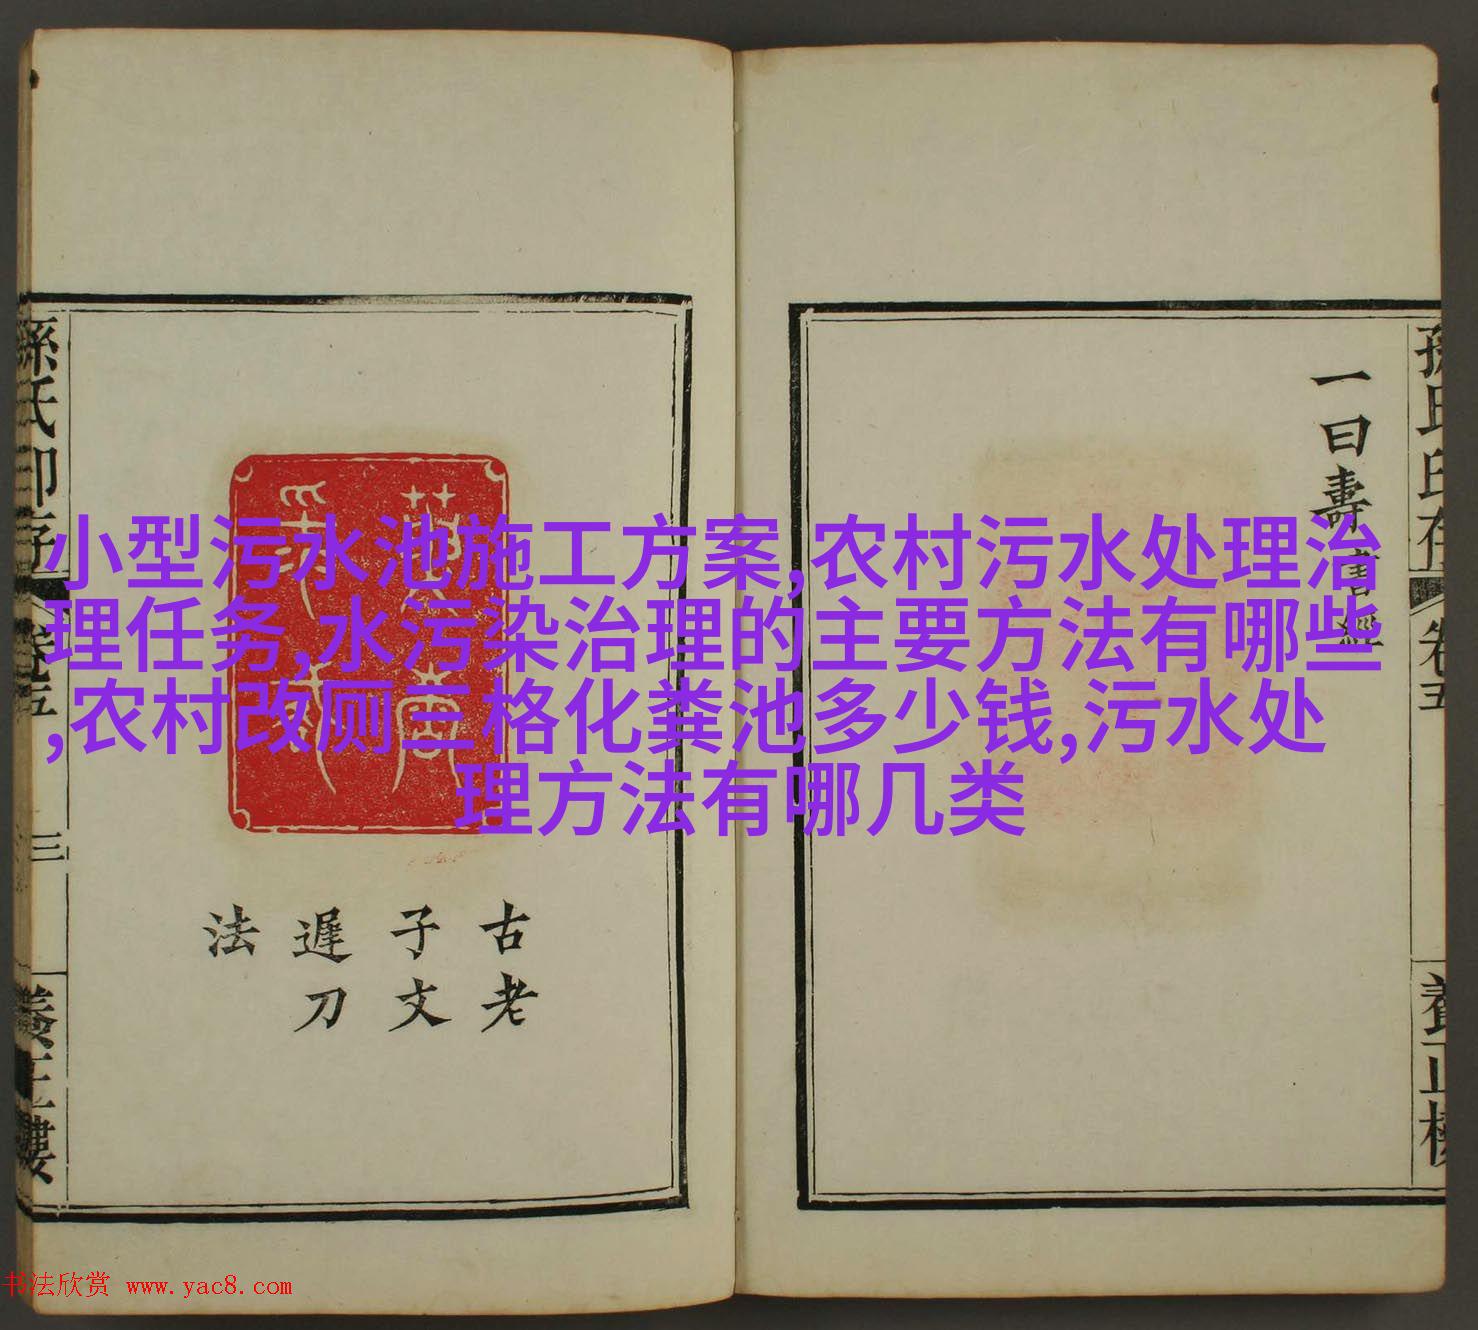 小型污水池施工方案,农村污水处理治
理任务,水污染治理的主要方法有哪些
,农村改厕三格化粪池多少钱,污水处
理方法有哪几类
一曰壽
孫氏印
卷五
養正樓
三
古老
子文
遲刀
法
书法欣赏 www.yac8.com